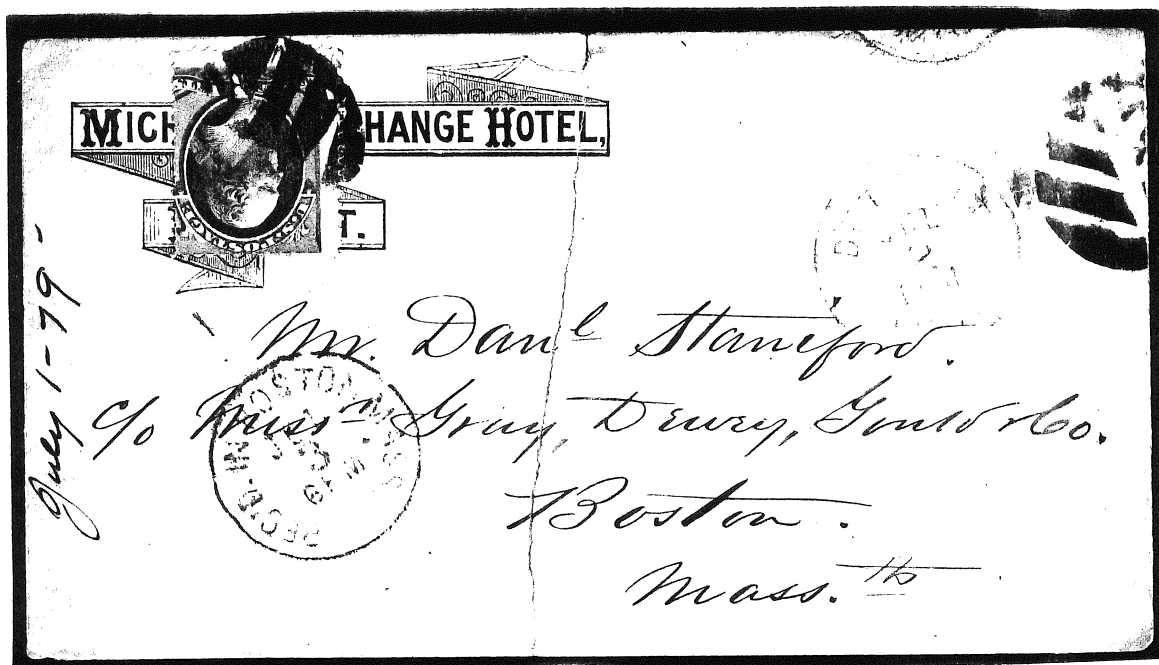 MICH HANGE HOTEL,
T.
July 1-79-
Mr. Danl Staniford.
c/o Messrs Gray, Dewey, Gould & Co.
Boston.
Mass.tts
REC'D. IN BOSTON MASS